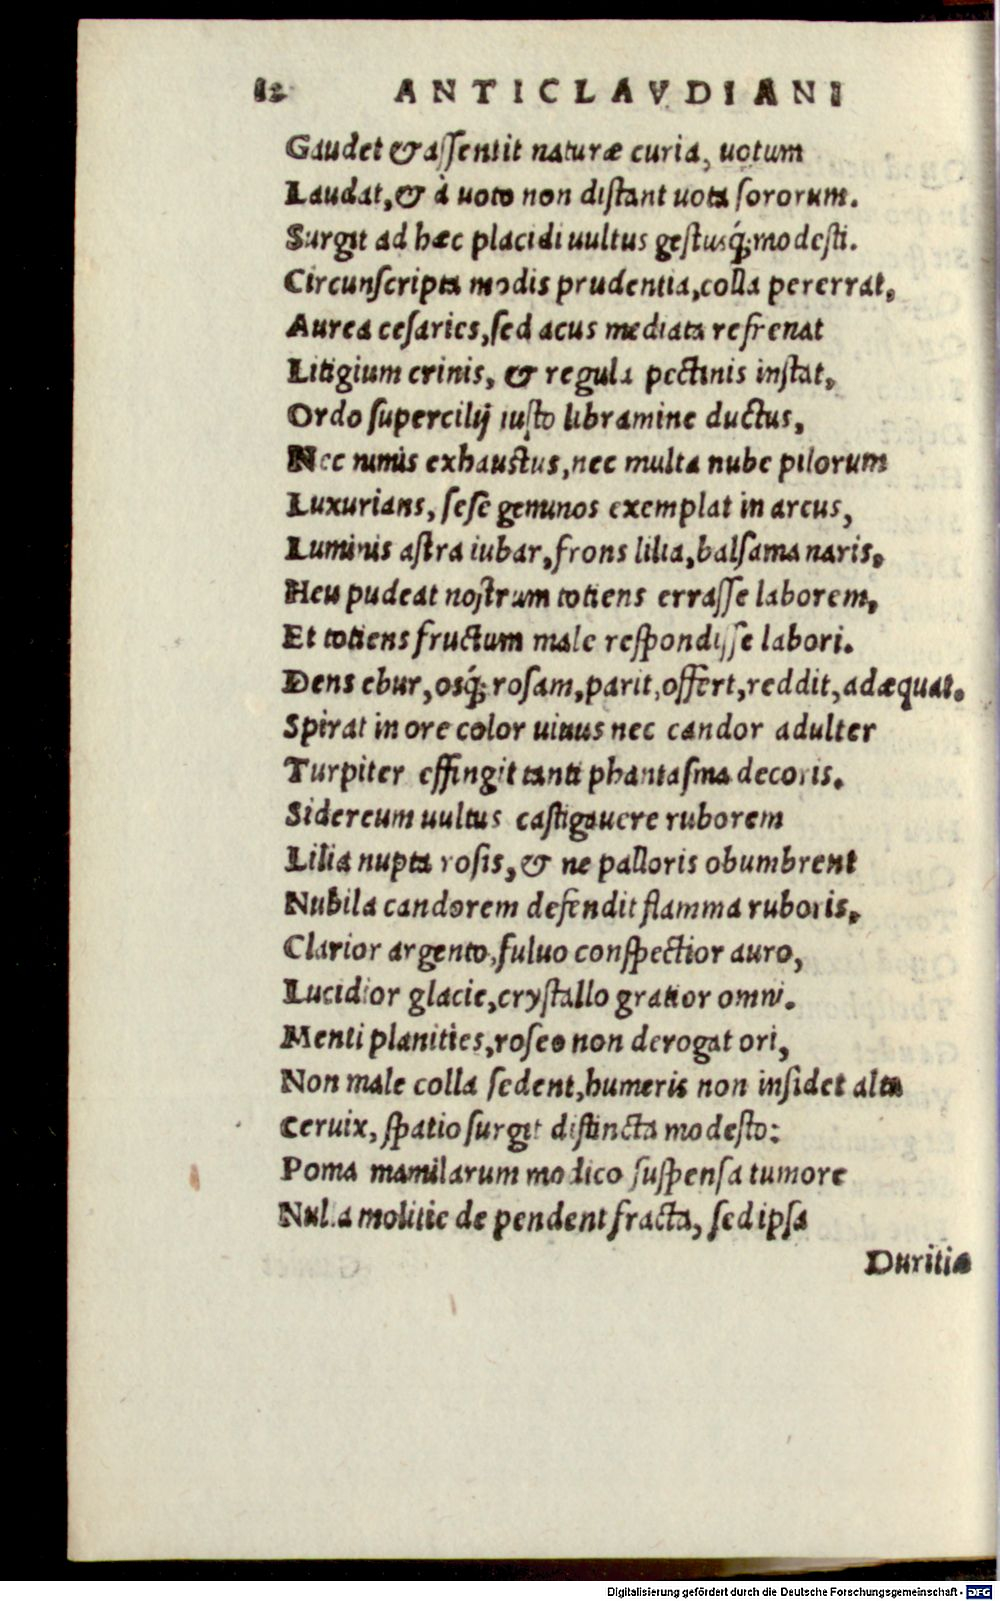 12 ANTICLAVDIANI
Gaudet & assentit naturæ curia, uotum
Laudat, & à uoto non distant uota sororum.
Surgit ad hæc placidi uultus gestusq́; modesti.
Circunscripta modis prudentia, colla pererrat,
Aurea cesaries, sed acus mediata refrenat
Litigium crinis, & regula pectinis instat,
Ordo supercilij iusto libramine ductus,
Nec nimis exhaustus, nec multa nube pilorum
Luxurians, sese geminos exemplat in arcus,
Luminis astra iubar, frons lilia, balsama naris,
Heu pudeat nostrum totiens errasse laborem,
Et totiens fructum male respondisse labori.
Dens ebur, osq́; rosam, parit, offert, reddit, adæquat.
Spirat in ore color uiuus nec candor adulter
Turpiter effingit tanti phantasma decoris.
Sidereum uultus castigauere ruborem
Lilia nupta rosis, & ne palloris obumbrent
Nubila candorem defendit flamma ruboris,
Clarior argento, fuluo conspectior auro,
Lucidior glacie, crystallo gratior omni.
Menti planities, roseo non derogat ori,
Non male colla sedent, humeris non insidet alta
Ceruix, spatio surgit distincta modesto:
Poma mamilarum modico suspensa tumore
Nulla molitie de pendent fracta, sed ipsa
Duritia
Digitalisierung gefördert durch die Deutsche Forschungsgemeinschaft - DFG